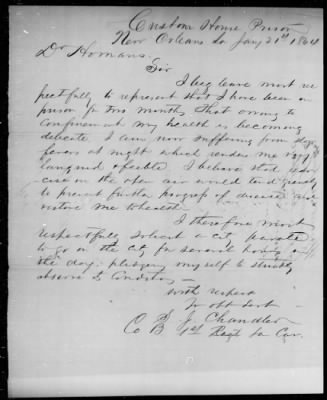 Custom House Prison
New Orleans La Jany 21st 1864
Dr Homans
Sir
I beg leave most res
pectfully to represent that I have been in
prison for two months, that owing to
confinement my health is becoming
delicate. I am now suffering from
fevers at night which renders me very
languid & feeble. I believe that exer
cise in the open air would tend greatly
to prevent further progress of disease and
restore me to health.
I therefore most
respectfully solicit a City parole
to go in the City for several hours in
the day, pledging myself to strictly
observe its Conditions
With respect
Yr obt Svt
S. J. Chandler
Co B 1st Regt La Cav.